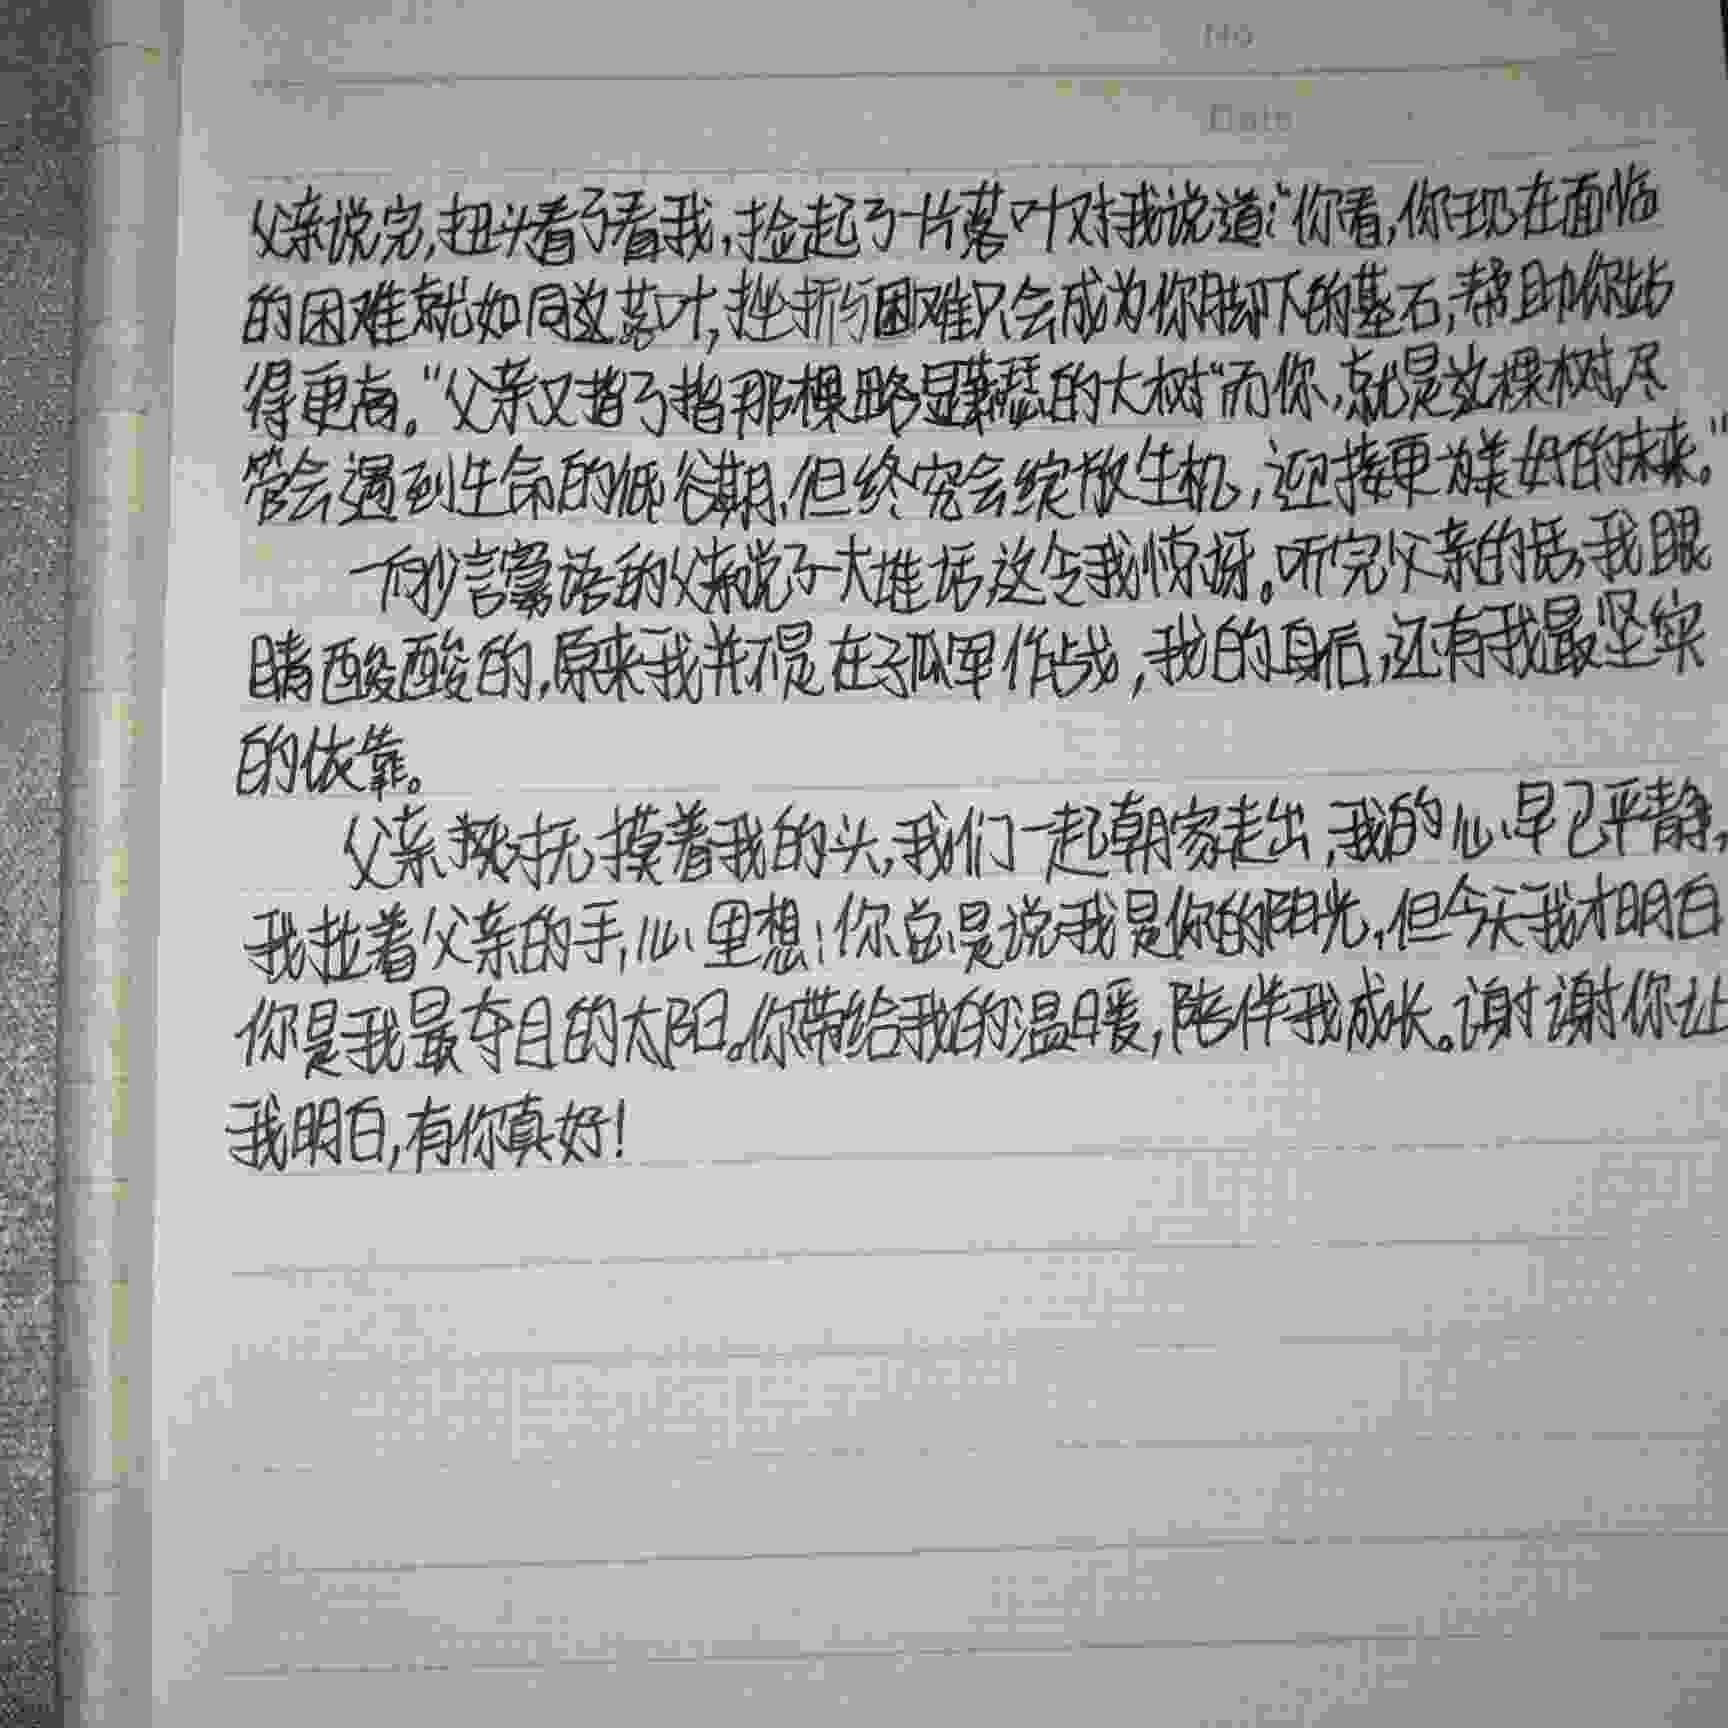 No
Date
父亲说完,扭头看了看我,捡起了一片落叶对我说道:“你看,你现在面临
的困难就如同这落叶,挫折与困难只会成为你脚下的基石,帮助你站
得更高。”父亲又指了指那棵略显萧瑟的大树“而你,就是这棵树,尽
管会遇到生命的低谷期,但终究会绽放生机,迎接更为美好的未来。”
一向少言寡语的父亲说了一大堆话,这令我惊讶。听完父亲的话,我眼
睛酸酸的,原来我并不是在孤军作战,我的身后,还有我最坚实
的依靠。
父亲抚摸着我的头,我们一起朝家走出,我的心早已平静,
我拉着父亲的手,心里想:你总是说我是你的阳光,但今天我才明白
你是我最夺目的太阳。你带给我的温暖,陪伴我成长。谢谢你让
我明白,有你真好!